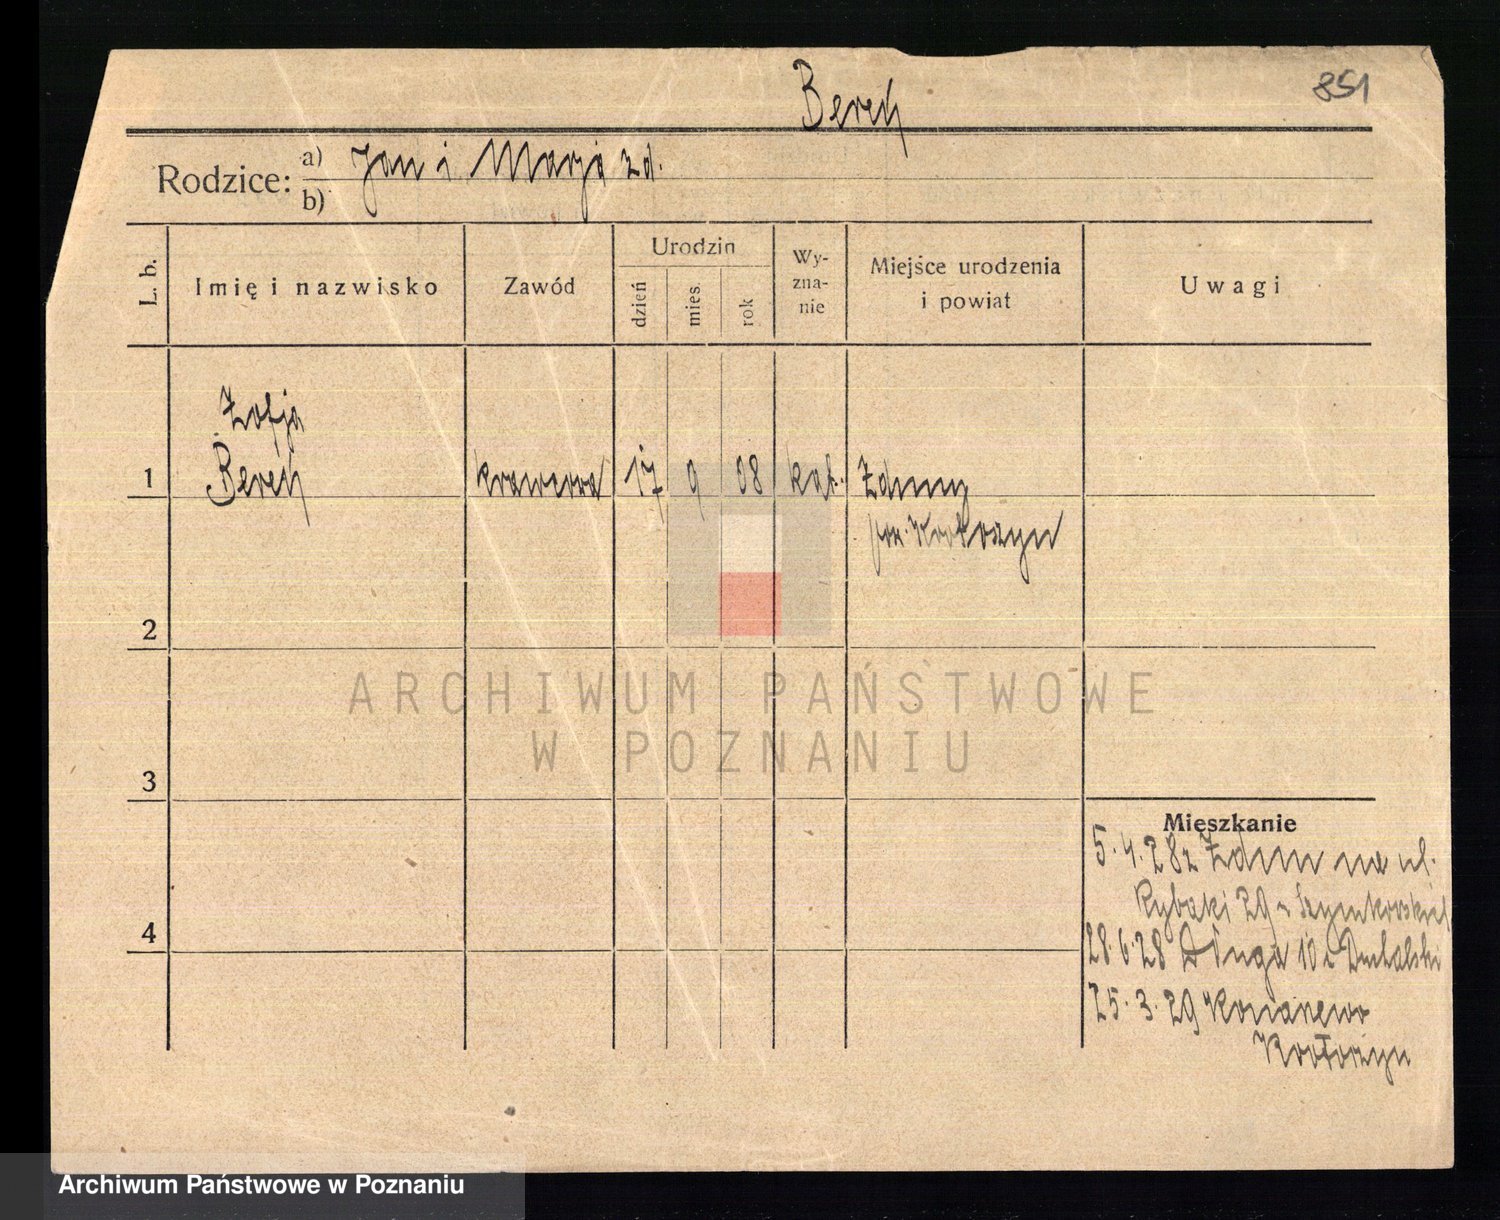 851
Berek
Rodzice:
a) Jan i Marja zd.
b)
L. b.
Imię i nazwisko
Zawód
Urodzin
dzień
mies.
rok
Wy-
zna-
nie
Miejsce urodzenia
i powiat
Uwagi
Zofja
1 Berek krawcowa 17 9 08 kat. Zduny
pow. Krotoszyn
2
3
4
Mieszkanie
5.4.28 z Zdun na ul.
Rybaki 29 u
28.6.28 Długa 10 u
25.3.29
Krotoszyn
ARCHIWUM PAŃSTWOWE
W POZNANIU
Archiwum Państwowe w Poznaniu